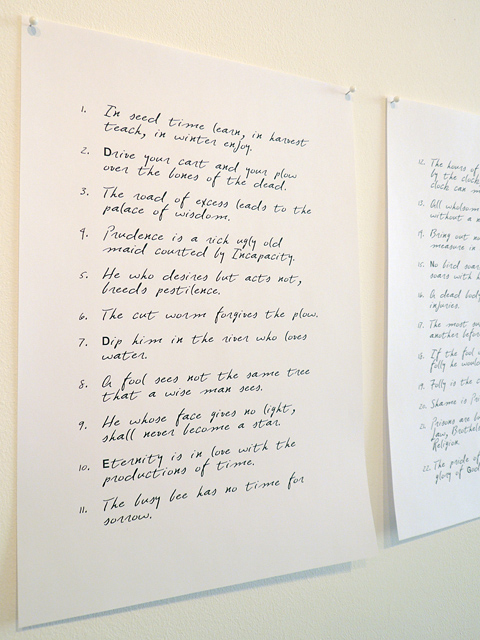 1. In seed time learn, in harvest
teach, in winter enjoy.
2. Drive your cart and your plow
over the bones of the dead.
3. The road of excess leads to the
palace of wisdom.
4. Prudence is a rich ugly old
maid courted by Incapacity.
5. He who desires but acts not,
breeds pestilence.
6. The cut worm forgives the plow.
7. Dip him in the river who loves
water.
8. A fool sees not the same tree
that a wise man sees.
9. He whose face gives no light,
shall never become a star.
10. Eternity is in love with the
productions of time.
11. The busy bee has no time for
sorrow.
12. The hours of
by the clock
clock can m
13. All wholesom
without a n
14. Bring out nu
measure in
15. No bird soar
soars with h
16. A dead body
injuries.
17. The most su
another befor
18. If the fool w
folly he woul
19. Folly is the c
20. Shame is Pri
21. Prisons are bu
Law, Brothels
Religion.
22. The pride of
glory of God